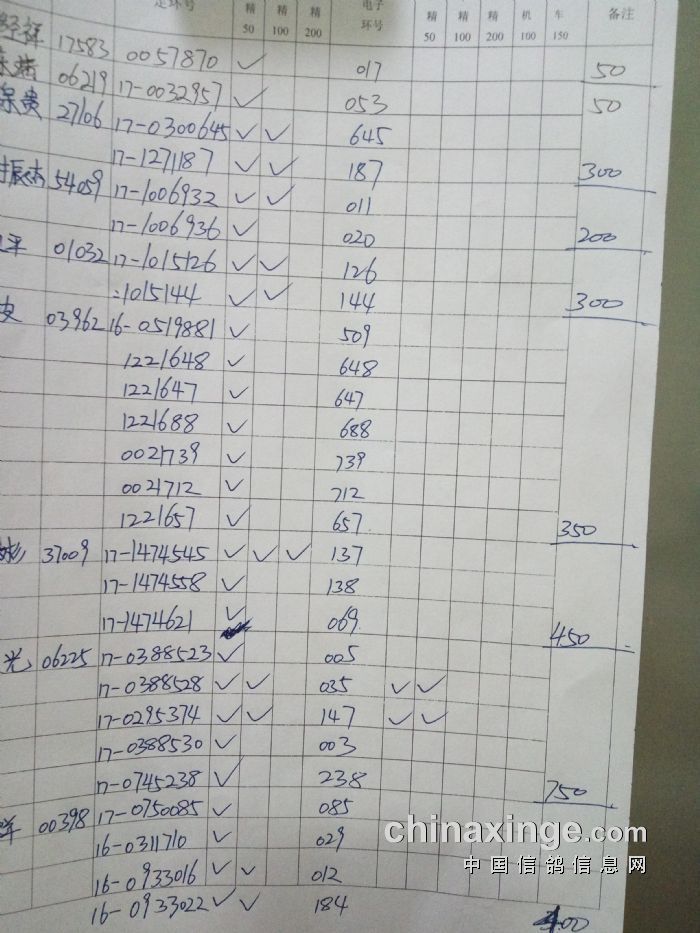 足环号 精50 精100 精200 电子环号 精50 精100 精200 机100 车150 备注
17583 0057870 ✓ 017 50
06219 17-0032957 ✓ 053 50
贵 27106 17-0300645 ✓ ✓ 645
17-1271187 ✓ ✓ 187 300
振杰 54059 17-1006932 ✓ ✓ 011
17-1006936 ✓ 020 200
平 01032 17-1015126 ✓ ✓ 126
:1015144 ✓ ✓ 144 300
03962 16-0519881 ✓ 509
1221648 ✓ 648
1221647 ✓ 647
1221688 ✓ 688
0021739 ✓ 739
0021712 ✓ 712
1221657 ✓ 657 350
彬 37009 17-1474545 ✓ ✓ ✓ 137
17-1474558 ✓ 138
17-1474621 ✓ 069 450
光 06225 17-0388523 ✓ 005
17-0388528 ✓ ✓ 035 ✓ ✓
17-0295374 ✓ ✓ 147 ✓ ✓
17-0388530 ✓ 003
17-0745238 ✓ 238 750
00398 17-0750085 ✓ 085
16-0311710 ✓ 029
16-0933016 ✓ ✓ 012
16-0933022 ✓ ✓ 184
chinaxinge.com
中国信鸽信息网